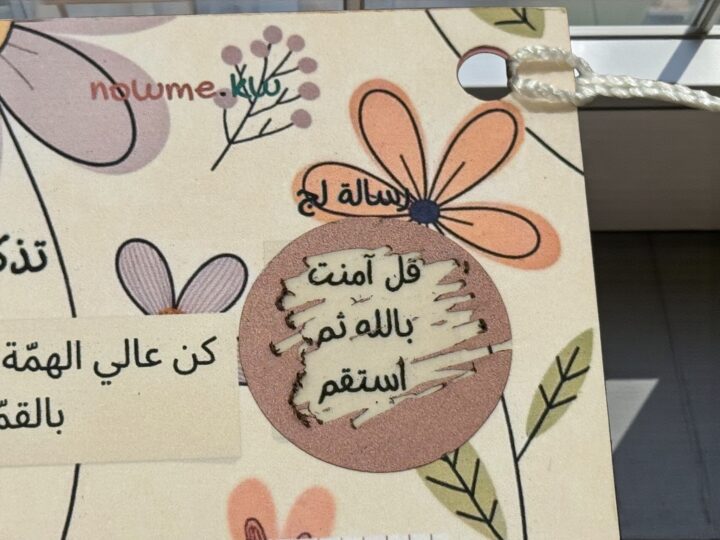 nowme.kw
رسالة لج
قل آمنت
بالله ثم
أستقم
كن عالي الهمّة